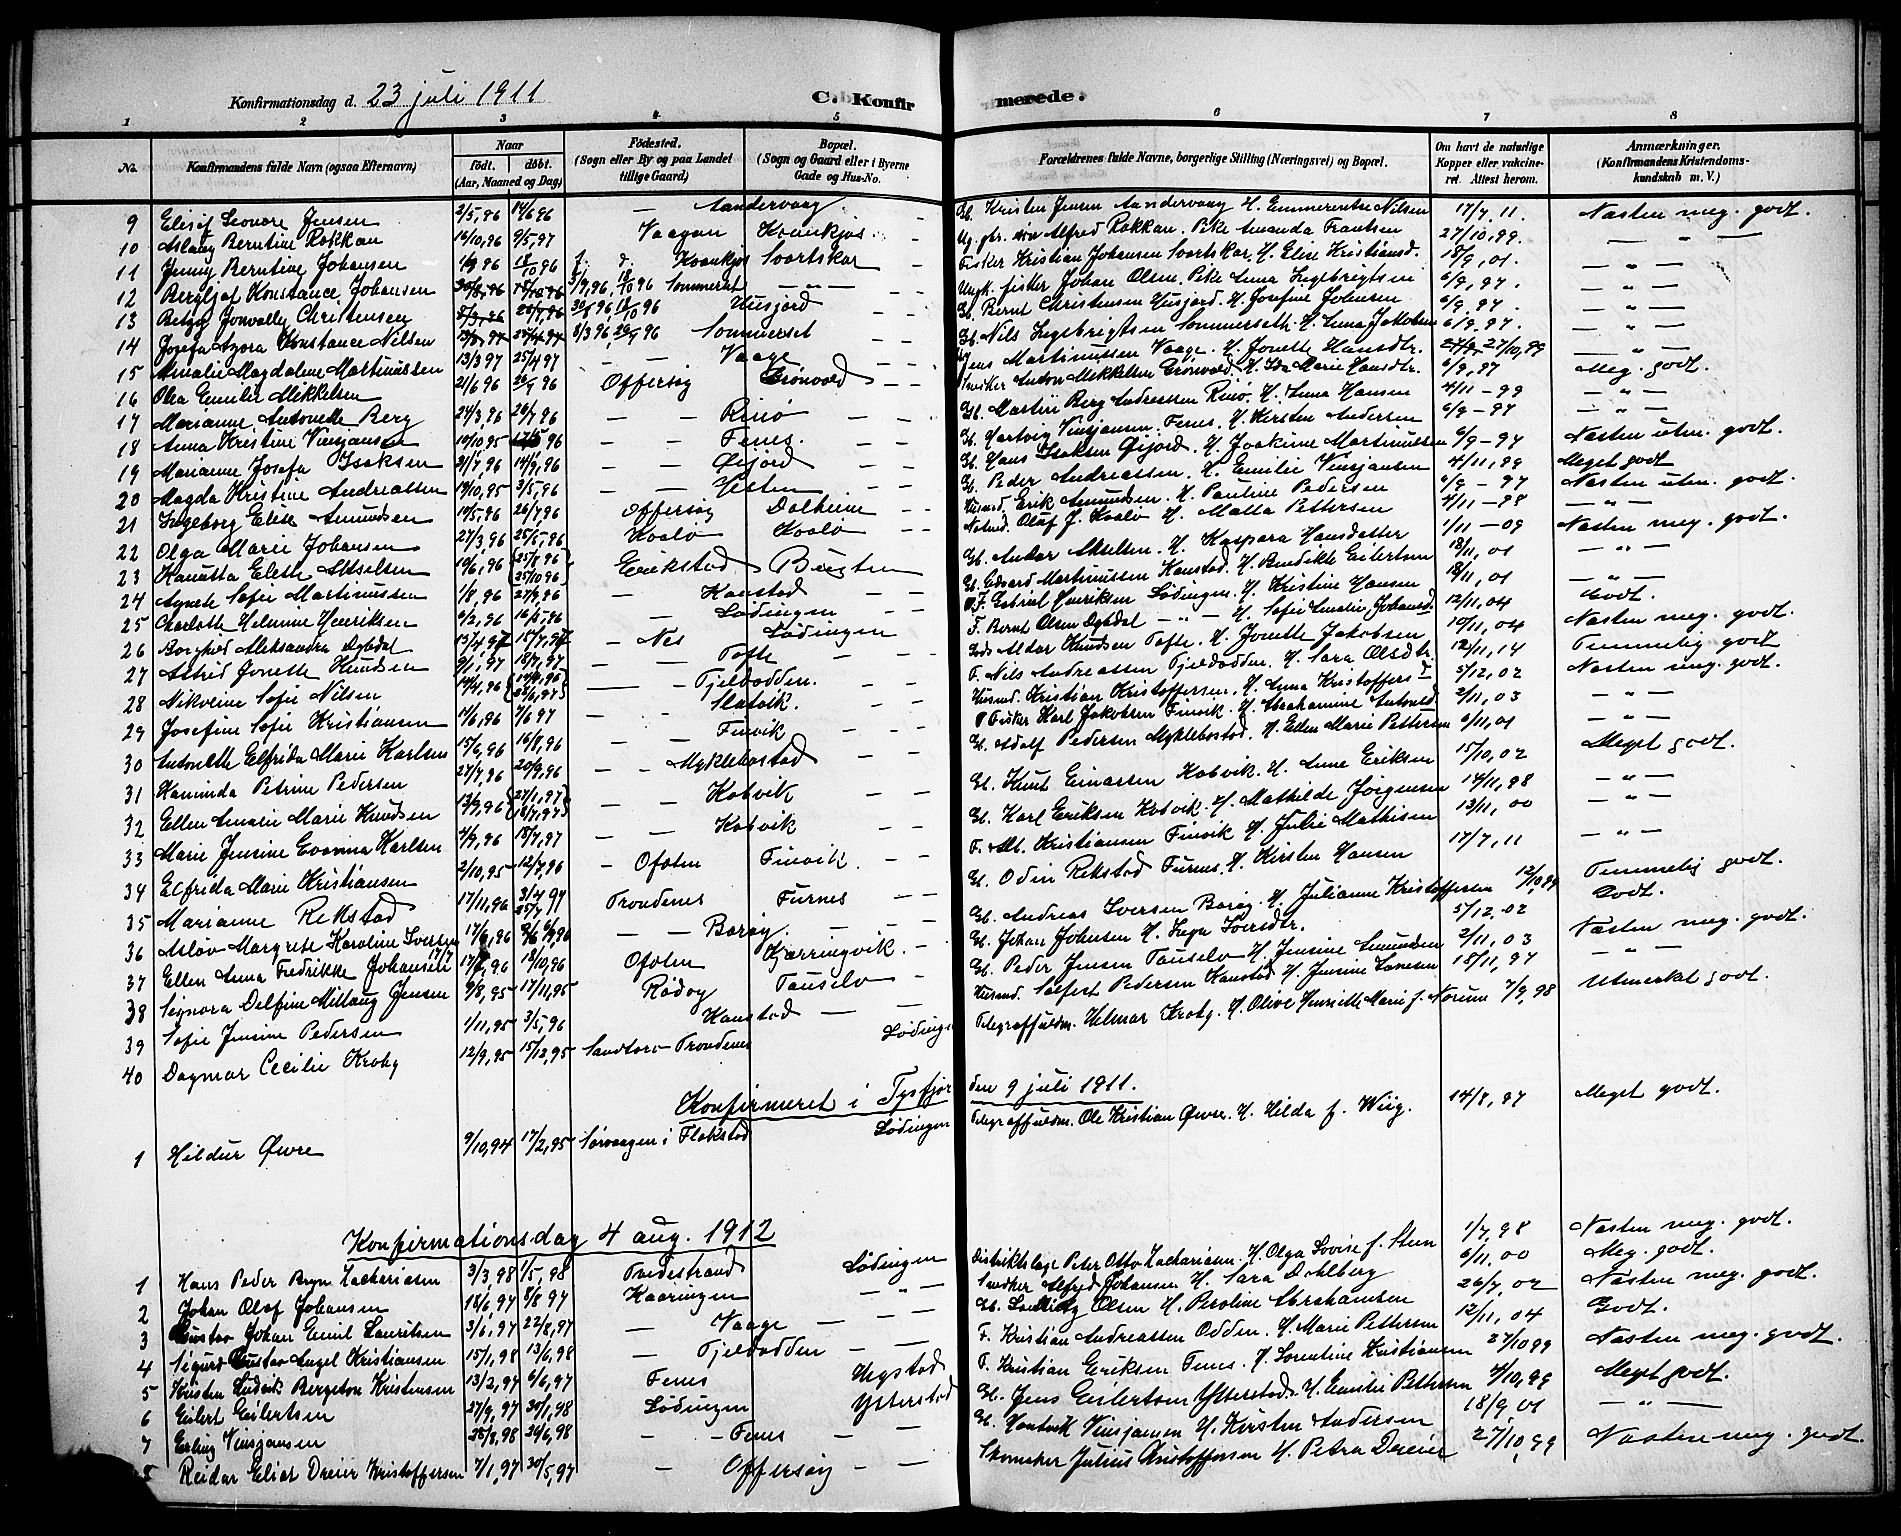 Konfirmationsdag d. 23 juli 1911 C. Konfirmerede.
1 2 3 4 5 6 7 8
No. Konfirmandens fulde Navn (ogsaa Efternavn) Naar født. døbt. (Aar, Maaned og Dag) Fødested. (Sogn eller By og paa Landet tillige Gaard) Bopæl. (Sogn og Gaard eller i Byerne Gade og Hus-No. Forældrenes fulde Navne, borgerlige Stilling (Næringsvei) og Bopæl. Om havt de naturlige Kopper eller vakcineret. Attest herom. Anmærkninger. (Konfirmandens Kristendomskundskab m. V.)
9 Elisif Leonore Jensen 2/5,96 14/6 96 — Sandervaag — Gb. Kristen Jensen Sandervaag H. Emmerentse Nilsen 17/7 11. Næsten meg. godt.
10 Aslaug Berntine Rokkan 16/10,96 9/5,97 — Vaagan Kvankjos — Alfred Rokkan. Pike Amanda Frantsen 27/10,99. — " —
11 Jenny Berntine Johansen Kvankjos Svartskar — Fisker Kristian Johansen Svartskar, H. Elise Kristiansd. 18/9,01. — " —
12 Bergljot Konstance Johansen Sommerset — " — fisker Johan Olsen. Pike Anna Ingebrigtsen 6/9,97. — " —
13 Christensen Husjord — Gb. Bernt Christensen Husjord. H. Josefine Johnsen 6/9,97. — " —
14 Josefa Azora Konstance Nilsen Sommerset — Gb. Nils Ingebrigtsen Sommerseth. H. Anna Jakobsen 6/9,97. — " —
15 Amalie Magdalene Martinussen 13/3 97 25/4 97 — Vaage — Jens Martinussen Vaage. H. Jonette Hansdtr. 27/10,99 — " —
16 Olea Emilie Mikkelsen 21/6 96 Offersøy Grønvold — Anton Mikkelsen Grønvold, H. Ida Marie Hansdtr. 6/9,97 Meg. godt.
17 Marianne Antonette Berg 24/3,96 26/7 96 — Rinø — Gb. Martin Berg Andreassen Rinø. H. Anna Hansen 4/11 - 99 — " —
18 Anna Kristine Vinsjansen 14/10 95 96 — Fenes. — Gb. Hartvig Vinsjansen. Fenes. H. Kirsten Andersen 6/9 - 97 — " —
19 Marianne Josefa Isaksen 31/7,96 14/9,96 — Øijord — Gb. Hans Isaksen Øijord. H. Joakime Martinussen 6/9 - 97 Næsten utm. godt.
20 Magda Kristine Andreassen 14/10,95 3/5,96 — Hesten — Gb. Peder Andreassen. H. Emilie Vinsjansen 4/11,99 Meget godt
21 Ingeborg Elise Amundsen 14/5,96 26/7,96 Offersøy Dalheim — Husmd. Erik Amundsen. H. Pauline Pedersen 6/9 - 97 Næsten utm. godt.
22 Olga Marie Johansen 27/3,96 25/5,96 Kvalø Kvalø — Olaf J. Kvalø H. Matta Pettersen 4/11 - 98 — " —
23 Hanatta Elette Akselsen 19/6,96 25/8 96 25/10 96 Erikstad Bugten Gb. Ander Akselsen. H. Kaspara Hansdatter 1/11 - 09 Næsten meg. godt.
24 Agnete Sofie Martinussen 1/8,96 27/9,96 — Kanstad — Gb. Edvard Martinussen Kanstad. H. Bendikte Eilertsen 18/11,01 — " —
25 Charlotte Helmine Henriksen 6/2,96 16/5,96 — Lødingen — Gabriel Henriksen Lødingen. H. Kristine Hansen 18/11,01 — " —
26 Borghild Aleksandra Dybdal 13/4,97 15/7,97 — Nes Lødingen F. Bernt Olsen Dybdal — " — H. Sofie Amalie Johansd. 12/11,04 Godt.
27 Astrid Jonette Knudsen 9/1,97 18/7,97 — Tofte Aldor Knudsen Tofte. H. Jonette Jakobsen 19/11,04 Næsten meg. godt.
28 Nikoline Sofie Nilsen 14/4,96 — Tjeldodden. F. Nils Andreassen Tjeldodden. H. Sara Olsdtr. 12/11,14 Temmelig godt
29 Josefine Sofie Kristiansen 4/6,96 7/6 97 — Slatvik. Husmd. Kristian Kristoffersen. H. Anna Kristoffersd. 5/12,02 Næsten meg. godt.
30 Antonette Elfrida Marie Karlsen 15/6,96 16/8,96 — Finvik — Fisker Karl Jakobsen Finvik. H. Abrahamine 2/11,03 — " —
31 Haminda Petrine Pedersen 27/7,96 20/9,96 — Myklebostad — Gb. Adolf Pedersen Myklebostad. H. Ellen Marie Pettersen 6/11,01 — " —
32 Ellen Amalie Marie Knudsen 13/9,96 27/1,97 18/7,97 — Kobvik — Gb. Knut Einarsen Kobvik. H. Anne Eriksen 15/10,02 Meget godt.
33 Marie Jensine Evanna Karlsen 4/9,96 18/7,97 — Kobvik — Gb. Karl Eriksen Kobvik. H. Mathilde Jørgensen 14/11,98 — " —
34 Elfrida Marie Kristiansen 2/10,95 12/7,96 — Ofoten Finvik. — F. Kristiansen Finvik H. Julie Mathisen 13/11,00 — " —
35 Marianne Rekstad 17/11,96 3/4 97 Trondenes Furnes — Gb. Odin Rekstad Furnes. H. Kirsten Hansen 17/7,11 — " —
36 Asløv Margrete Karoline Iversen 17/6,96 — Barøy. — Gb. Andreas Iversen Barøy. H. Julianne Kristoffersen 12/10 99 Temmelig godt.
37 Ellen Anna Fredrikke Johansen 96 18/10,96 Ofoten Kjærringvik. — Gb. Johan Johnsen H. Inga Iversdtr. 5/12,02 Godt.
38 Signora Delfine Millaug Jensen 9/8,95 17/11,95 Rødøy Tauselv — Gb. Peder Jensen Tauselv H. Jensine Amundsen 2/11,03 Næsten meg. godt.
39 Sofie Jensine Pedersen 1/11,95 3/5,96 Kanstad — Husmd. Salfert Pedersen Kanstad H. Jensine Larsen 18/11,97 — " —
40 Dagmar Cecilie Krobg 12/9,95 15/12,95 Sandtorv Trondenes Lødingen Telegraffuldm. Helmar Krobg. H. Olive Henriette Marie f. Norum 7/9,98 Utmerket godt.
Konfirmeret i Tysfjor den 9 juli 1911.
1 Hildur Øwre 9/10,94 17/2,95 Sørvaagen i Flakstad Lødingen Telegraffuldm. Ole Kristian Øwre. H. Hilda f. Wiig. 14/8,97 Meget godt.
Konfirmationsdag 4 aug. 1912
1 Hans Peder Bryn Zachariasen 3/3,98 1/5,98 Tvedestrand Lødingen Distriktslæge Peter Otto Zachariasen. H. Olga Lovise f. Steen 1/7,98 Næsten meg. godt.
2 Johan Olaf Johansen 18/6,97 8/8 97 Kaaringen — " — Alfred Johansen H. Sara Dahlberg 6/11,00 Meg. godt.
3 Gustav Johan Emil Lauritsen 3/6,97 22/8,97 — Vaage — Gb. Olsen H. Beroline Abrahamsen 26/7,02 Næsten meg. godt.
4 Sigurd Gustav Angel Kristiansen 15/1,98 13/6,98 — Tjeldodden — F. Kristian Andreassen Odden. H. Marie Pettersen 12/11,04 Godt.
5 Kristen Ludvik Bergeton Kristensen 13/2,97 6/6,97 Fenes F. Kristian Eriksen Fenes. H. Lorentine Kristiansen 27/10 99 Næsten meg. godt.
6 Eilert Eilertsen 27/9,97 30/1,98 Lødingen Ytterstad Gb. Jens Eilertsen Ytterstad. H. Emilie Pettersen 4/10,99 Meget godt.
7 Erling Vinsjansen 25/8,98 26/6,98 — Fenes — Gb. Hartvik Vinsjansen H. Kirsten Andersen 18/9 01 — " —
Reidar Eliot Dreier Kristoffersen 7/1,97 30/5,97 — Offersøy — Skomaker Julius Kristoffersen H. Petra Dreier 27/10,99 Næsten meg. godt.